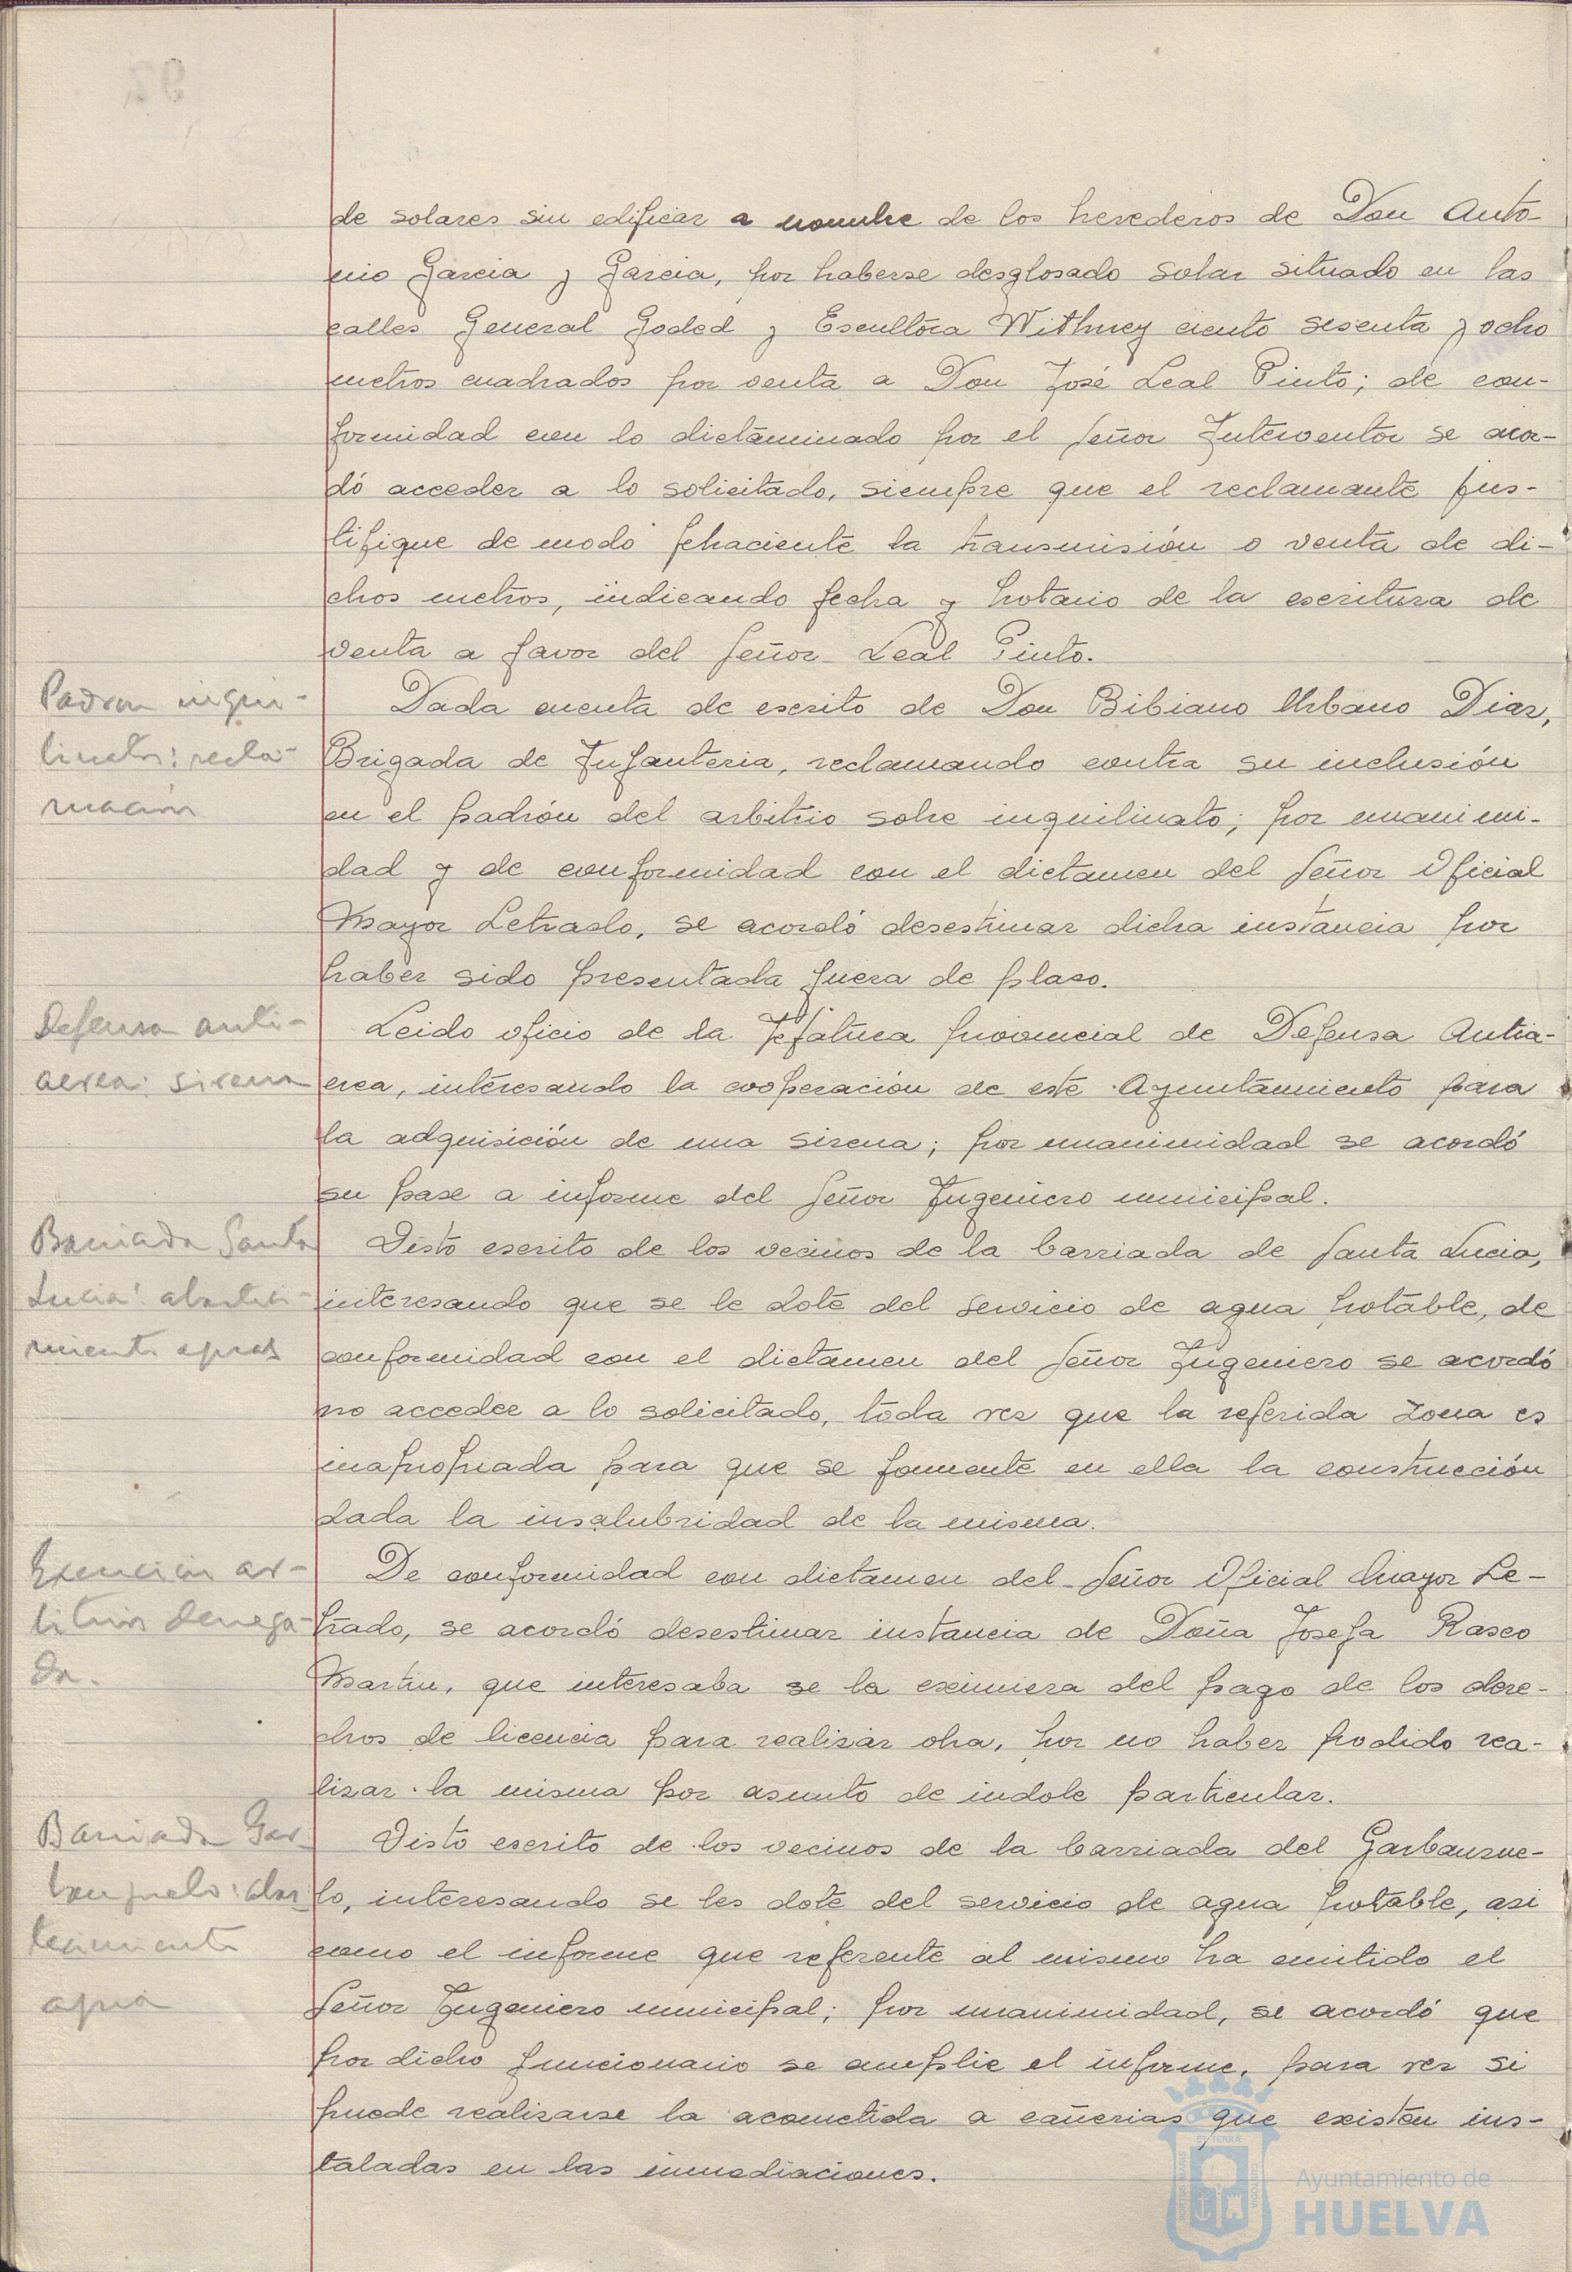 de solares sin edificar a nombre de los herederos de Don Anto-
nio Garcia y Garcia, por haberse desglosado solar situado en las
calles General Goded y Escultora Withney ciento sesenta y ocho
metros cuadrados por venta a Don José Leal Pinto; de con-
formidad con lo dictaminado por el Señor Interventor se acor-
dó acceder a lo solicitado, siempre que el reclamante jus-
tifique de modo fehaciente la transmisión o venta de di-
chos metros, indicando fecha y notario de la escritura de
venta a favor del Señor Leal Pinto.
Padron inqui-
linatos: recla-
mación
Dada cuenta de escrito de Don Bibiano Urbano Diaz,
Brigada de Infanteria, reclamando contra su inclusión
en el padrón del arbitrio sobre inquilinato; por unanimi-
dad y de conformidad con el dictamen del Señor Oficial
Mayor Letrado, se acordó desestimar dicha instancia por
haber sido presentada fuera de plazo.
Defensa anti-
aerea: sirena
Leido oficio de la Jefatura provincial de Defensa Antia-
erea, interesando la cooperación de este Ayuntamiento para
la adquisición de una sirena; por unanimidad se acordó
su pase a informe del Señor Ingeniero municipal.
Barriada Santa
Lucia: abasteci-
miento aguas
Visto escrito de los vecinos de la barriada de Santa Lucia,
interesando que se le dote del servicio de agua potable, de
conformidad con el dictamen del Señor Ingeniero se acordó
no acceder a lo solicitado, toda vez que la referida zona es
inapropiada para que se fomente en ella la construcción
dada la insalubridad de la misma.
Exencion ar-
bitrios denega-
da.
De conformidad con dictamen del Señor Oficial Mayor Le-
trado, se acordó desestimar instancia de Doña Josefa Rasco
Martin, que interesaba se la eximiera del pago de los dere-
chos de licencia para realizar obra, por no haber podido rea-
lizar la misma por asunto de indole particular.
Barriada Gar-
banzuelo: abas-
tecimiento
agua
Visto escrito de los vecinos de la barriada del Garbanzue-
lo, interesando se les dote del servicio de agua potable, asi
como el informe que referente al mismo ha emitido el
Señor Ingeniero municipal; por unanimidad, se acordó que
por dicho funcionario se amplie el informe, para ver si
puede realizarse la acometida a cañerias que existen ins-
taladas en las inmediaciones.
Ayuntamiento de
HUELVA